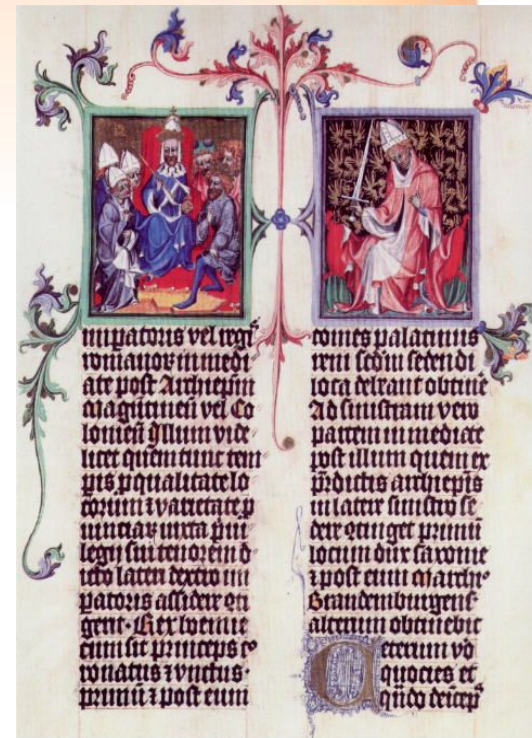 imperatoris vel regis
romanor immedi
ate post Archiepm
Magutineñ vel Co
lonieñ Illum vide
licet quem tunc tem
pis p qualitate lo
corum ⁊ varietate p
uinciar iuxta priui
legij sui tenorem in d
icto latere dextro im
patoris assidere con
gent· Rex boemie
cum sit princeps co
ronatus ⁊ vnctus·
primū ⁊ post eum
comes palatinus
reni scdm sedendi
loca debeant obtinē
Ad sinistram vero
partem immediate
post illum quem ex
p̄dictis archiepis
in latere sinistro se
dere contiget primū
locum dux saxonie
⁊ post eum marchio
Brandemburgens
alterum obtinebit
Ceterum vo
quocies et
qn̄do deincep